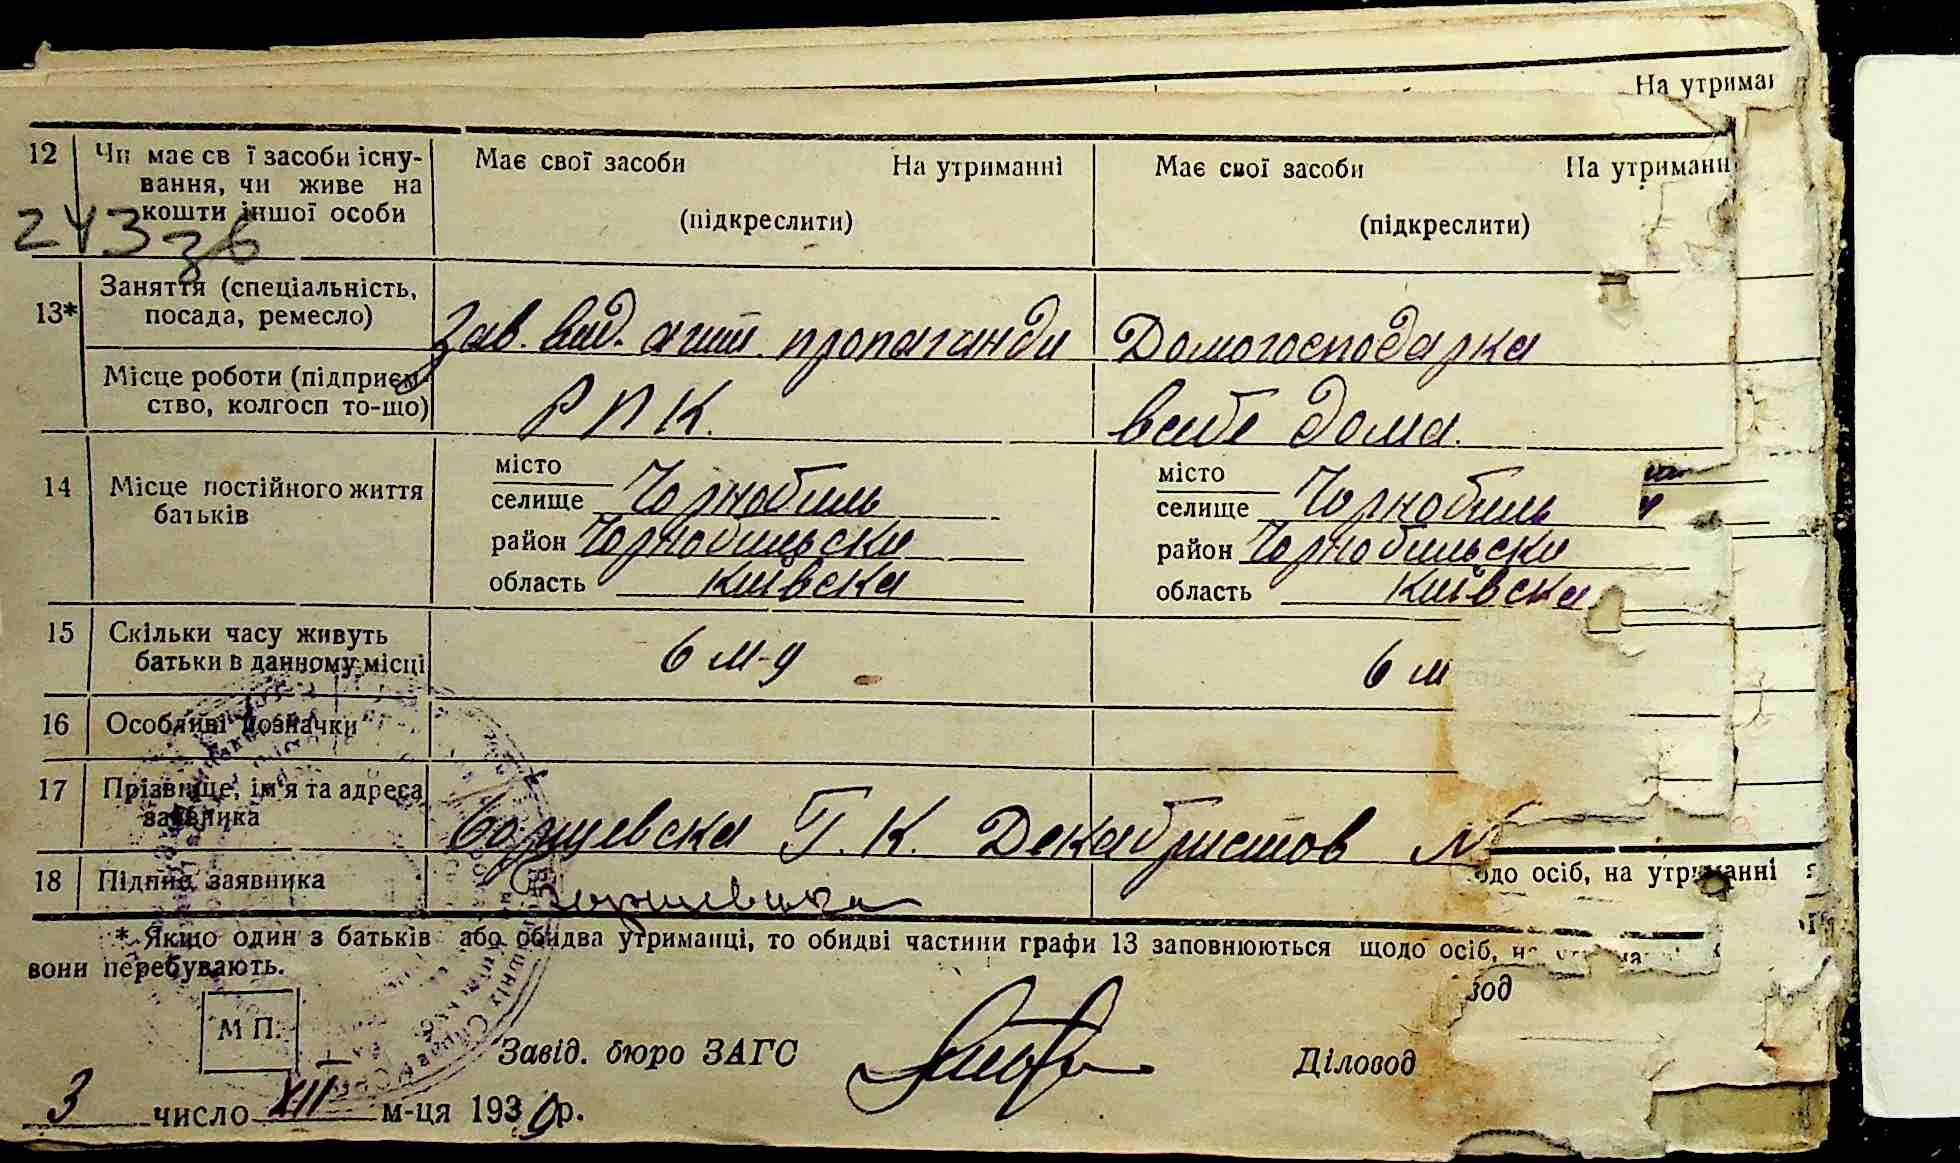 На утриман
12 Чи має св ї засоби існу- Має свої засоби На утриманні Має свої засоби На утриманн
вання, чи живе на
кошти іншої особи (підкреслити) (підкреслити)
243 36
13* Заняття (спеціальність,
посада, ремесло) Зав. вид. агит пропаганди Домогосподарка
Місце роботи (підприєм-
ство, колгосп то-що) РПК. в себе дома.
14 Місце постійного життя
батьків
місто місто
селище Чорнобиль селище Чорнобиль
район Чорнобильски район Чорнобильски
область київска область київска
15 Скільки часу живуть
батьки в данному місці 6 м-ц 6 м
16 Особливі позначки
17 Прізвище, ім'я та адреса
заявника Борщевска Г. К. Декабристов №
18 Підпис заявника
одо осіб, на утриманні я
* Якщо один з батьків або обидва утриманці, то обидві частини графи 13 заповнюються щодо осіб, на
вони перебувають.
вод
М П.
Завід. бюро ЗАГС Діловод
3 число XII м-ця 1939р.